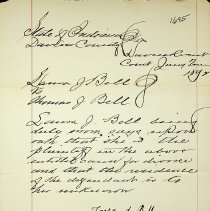 1695
State of Indiana
Daviess County
Daviess Court
Court June Term
1892
Laura J Bell
vs
Thomas J Bell
Laura J. Bell being
duly sworn says upon
oath that she is the
plaintiff in the above
entitled cause for divorce
and that the residence
of the defendant is to
her unknown